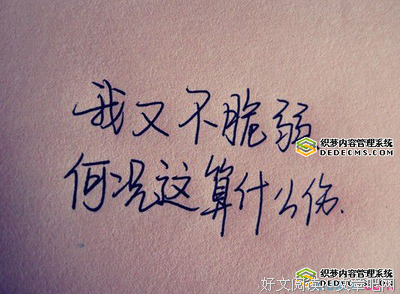 我又不脆弱
织梦内容管理系统
DEDECMS.COM
何况这算什么伤.
织梦内容管理系统
DEDECMS.COM
好文阅读